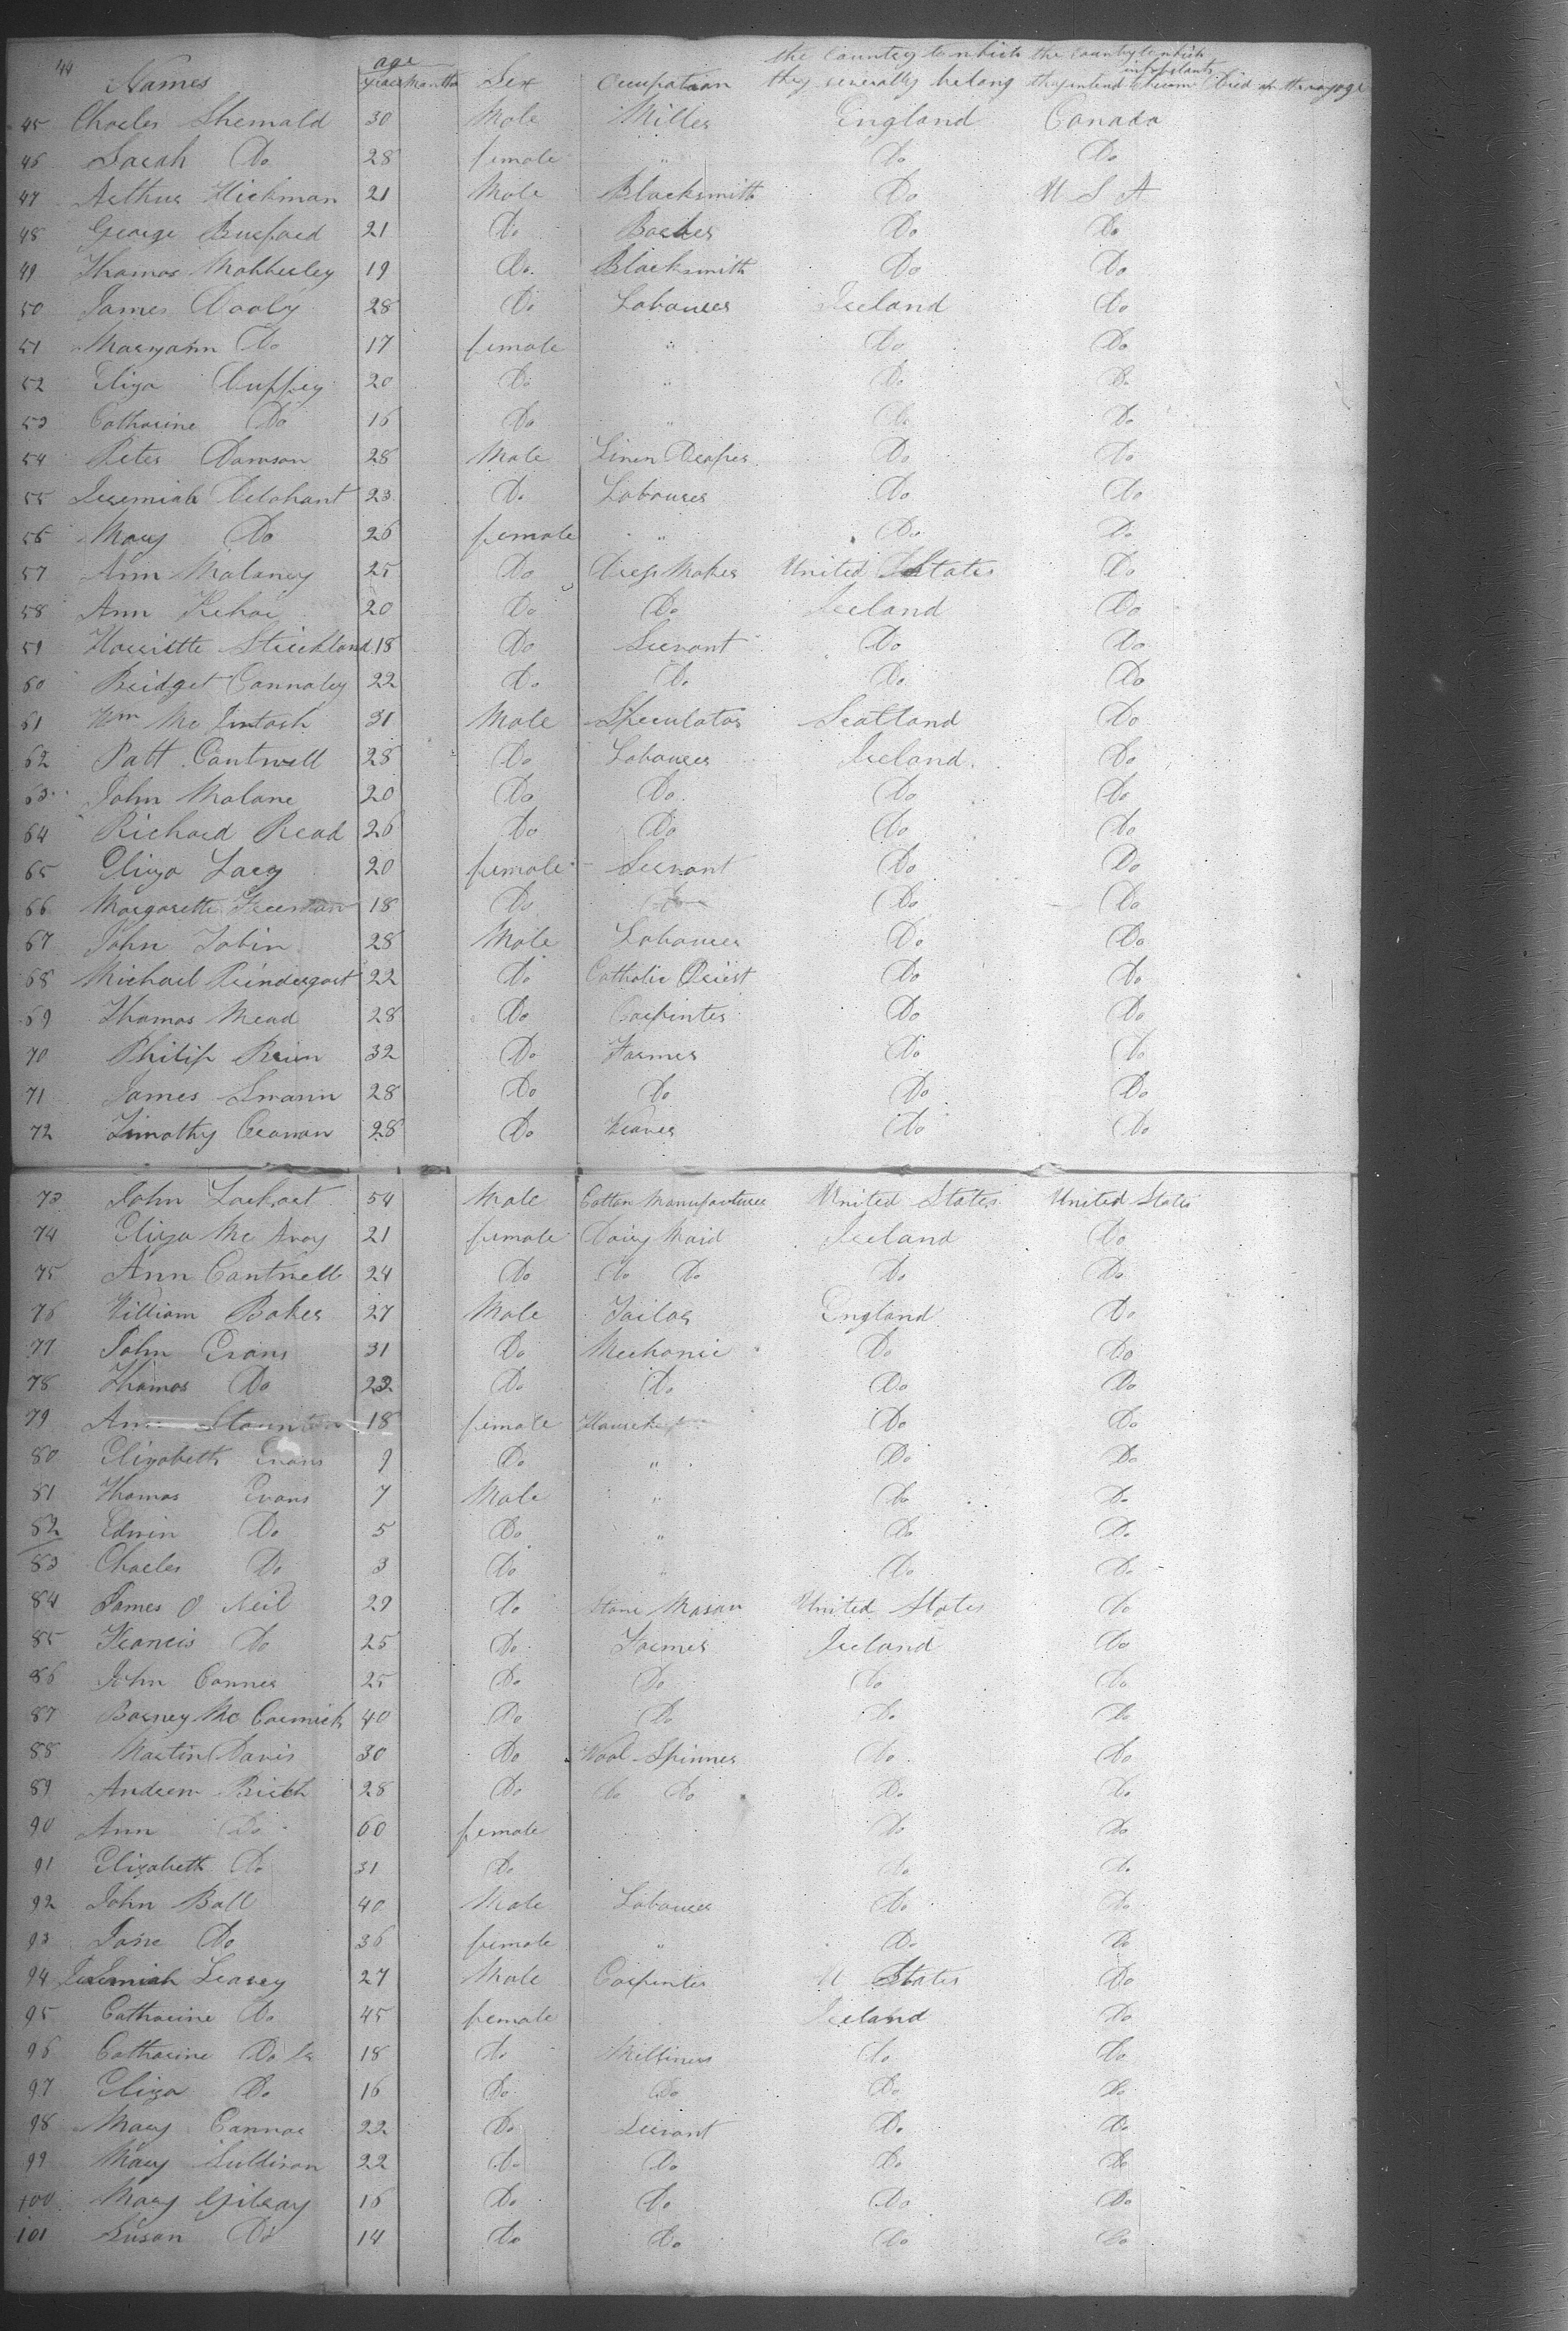 44 Names age years months Sex Occupation the Country to which they severally belong the Country to which they intend to become inhabitants Died on the voyage
45 Charles Shemald 30 Male Miller England Canada
46 Sarah Do 28 female " Do Do
47 Arthur Hickman 21 Male Blacksmith Do U S A
48 George Burford 21 Do Do Do
49 Thomas Mobberley 19 Do Blacksmith Do Do
50 James Dooly 28 Do Labourer Ireland Do
51 Maryann Do 17 female " Do Do
52 Eliza Duffey 20 Do " Do Do
53 Catharine Do 16 Do " Do Do
54 Peter Dawson 28 Male Linen Draper Do Do
55 Jeremiah Delohant 23 Do Labourer Do Do
56 Mary Do 26 female " Do Do
57 Ann Maloney 25 Do Dress Maker United States Do
58 Ann Kehoe 20 Do Do Ireland Do
59 Harriette Strickland 18 Do Servant Do Do
60 Bridget Connoley 22 Do Do Do Do
61 Wm Mc Jntosh 31 Male Speculator Scotland Do
62 Patt Cantwell 28 Do Labourer Ireland Do
63 John Malone 20 Do Do Do Do
64 Richard Read 26 Do Do Do Do
65 Eliza Lacy 20 female Servant Do Do
66 Margarette Freeman 18 Do Do Do Do
67 John Tobin 28 Male Labourer Do Do
68 Michael Prindergast 22 Do Catholic Priest Do Do
69 Thomas Mead 28 Do Carpinter Do Do
70 Philip Brien 32 Do Farmer Do Do
71 James Swann 28 Do Do Do Do
72 Timothy Cronan 28 Do Weaver Do Do
73 John Lockart 54 Male Cotton Manufacturer United States United States
74 Eliza Mc Avoy 21 female Dairy Maid Ireland Do
75 Ann Cantwell 24 Do Do Do Do Do
76 William Baker 27 Male Tailor England Do
77 John Evans 31 Do Mechanic Do Do
78 Thomas Do 22 Do Do Do Do
79 Ann Staunton 18 female Do Do
80 Elizabeth Evans 9 Do " Do Do
81 Thomas Evans 7 Male " Do Do
82 Edwin Do 5 Do " Do Do
83 Charles Do 3 Do " Do Do
84 James O Neil 29 Do Stone Mason United States Do
85 Francis Do 25 Do Farmer Ireland Do
86 John Conner 25 Do Do Do Do
87 Barney Mc Cormick 40 Do Do Do Do
88 Martin Davis 30 Do Wool Spinner Do Do
89 Andrew Birch 28 Do Do Do Do Do
90 Ann Do 60 female Do Do
91 Elizabeth Do 31 Do Do Do
92 John Ball 40 Male Labourer Do Do
93 Jane Do 36 female " Do Do
94 Jeremiah Leavey 27 Male Carpinter U States Do
95 Catharine Do 45 female Ireland Do
96 Catharine Do Jr 18 Do Milliner Do Do
97 Eliza Do 16 Do Do Do Do
98 Mary Connor 22 Do Servant Do Do
99 Mary Sullivan 22 Do Do Do Do
100 Mary Gilray 16 Do Do Do Do
101 Susan Do 14 Do Do Do Do